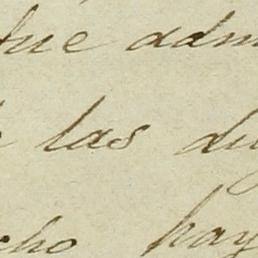 que adm
las di
cho hay